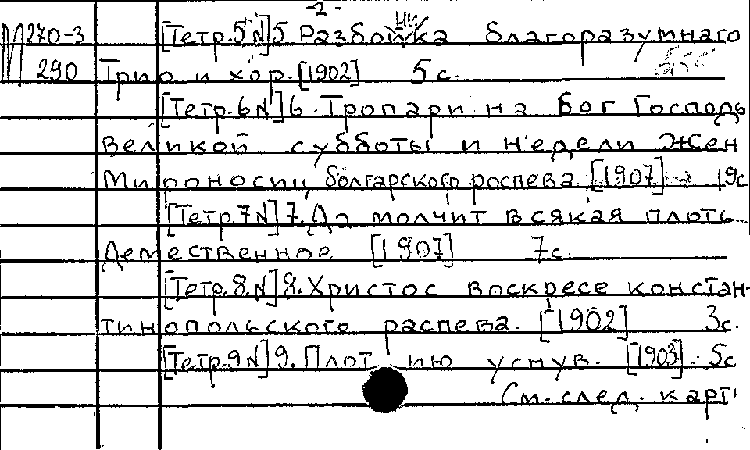 -2-
М 270-3 [Тетр.5 N] 5. Разбойника благоразумнаго
290 Трио и хор. [1902] 5 с.
[Тетр.6 N] 6. Тропари на Бог Господь
Великой субботы и недели Жен
Мироносиц, болгарского роспева. [1907] 19с
[Тетр.7 N] 7. Да молчит всякая плоть
Демественное [1907] 7с.
[Тетр.8. N] 8. Христос воскресе констан-
тинопольского распева. [1902] 3с.
[Тетр.9 N] 9. Плотию уснув. [1903]. 5с
См. след. карт.